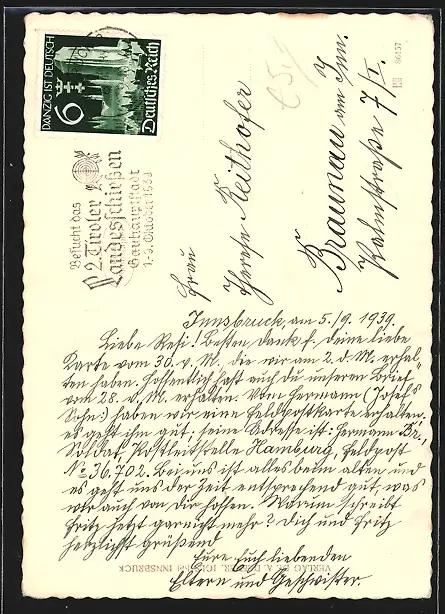 DANZIG IST DEUTSCH
6
Deutsches Reich
Besucht das
2. Tiroler
Landesschießen
Gauhauptstadt
1.-9. Oktober 1939
Frau
Therese Reithofer
Braunau am Inn.
Palmstraße 7/I.
86157
Innsbruck, am 5./9. 1939.
Liebe Resi! Besten Dank f. deine liebe
Karte vom 30. v. M. die wir am 2. d. M. erhal-
ten haben. Hoffentlich hast auch du unseren Brief
vom 28. v. M. erhalten. Vom Hermann (Josefs
Sohn:) haben wir eine Feldpostkarte erhalten.
es geht ihm gut; seine Adresse ist: Hermann Br.,
Soldat, Postleitstelle Hamburg, Feldpost
No 36.702. Bei uns ist alles beim alten und
es geht uns der Zeit entsprechend gut, was
wir auch von dir hoffen. Warum schreibt
Fritz jetzt garnicht mehr? Dich und Fritz
herzlichst grüßend
Eure Euch liebenden
Eltern und Geschwister.
VERLAG DR. A. INNSBRUCK